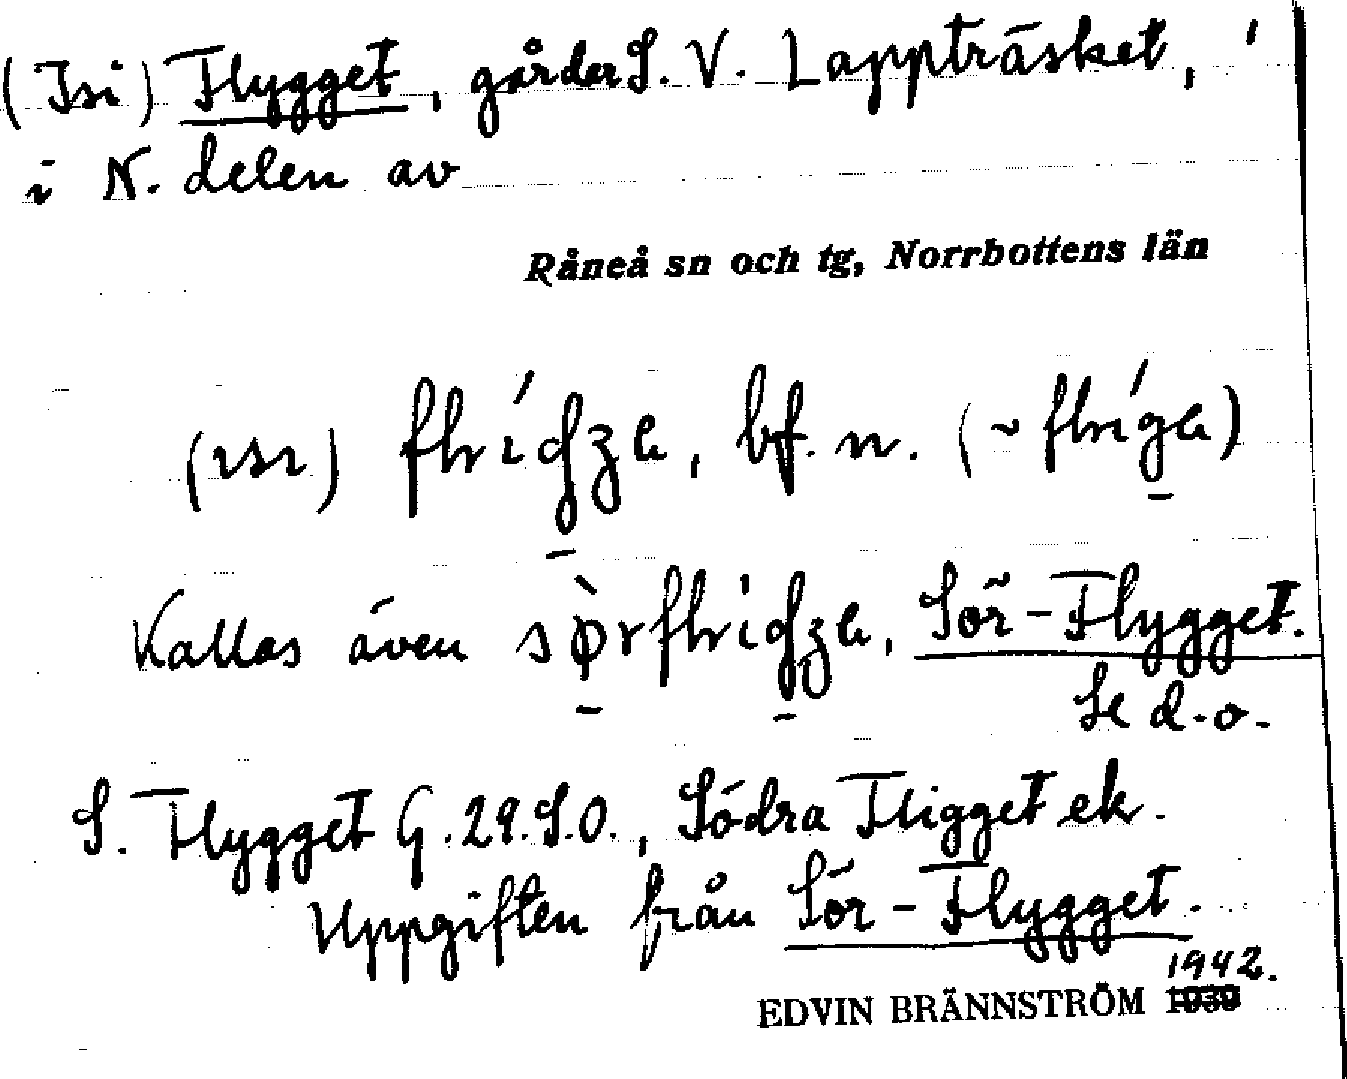 (Isi) Flygget, gårder S. V. Lappträsket,
i N. delen av
Råneå sn och tg, Norrbottens län
bf. n.
Kallas även Sör-Flygget.
Se d.o.
S. Flygget G. 29. S.O., Södra Fligget ek.
Uppgiften från Sör-Flygget.
1942.
EDVIN BRÄNNSTRÖM 1939